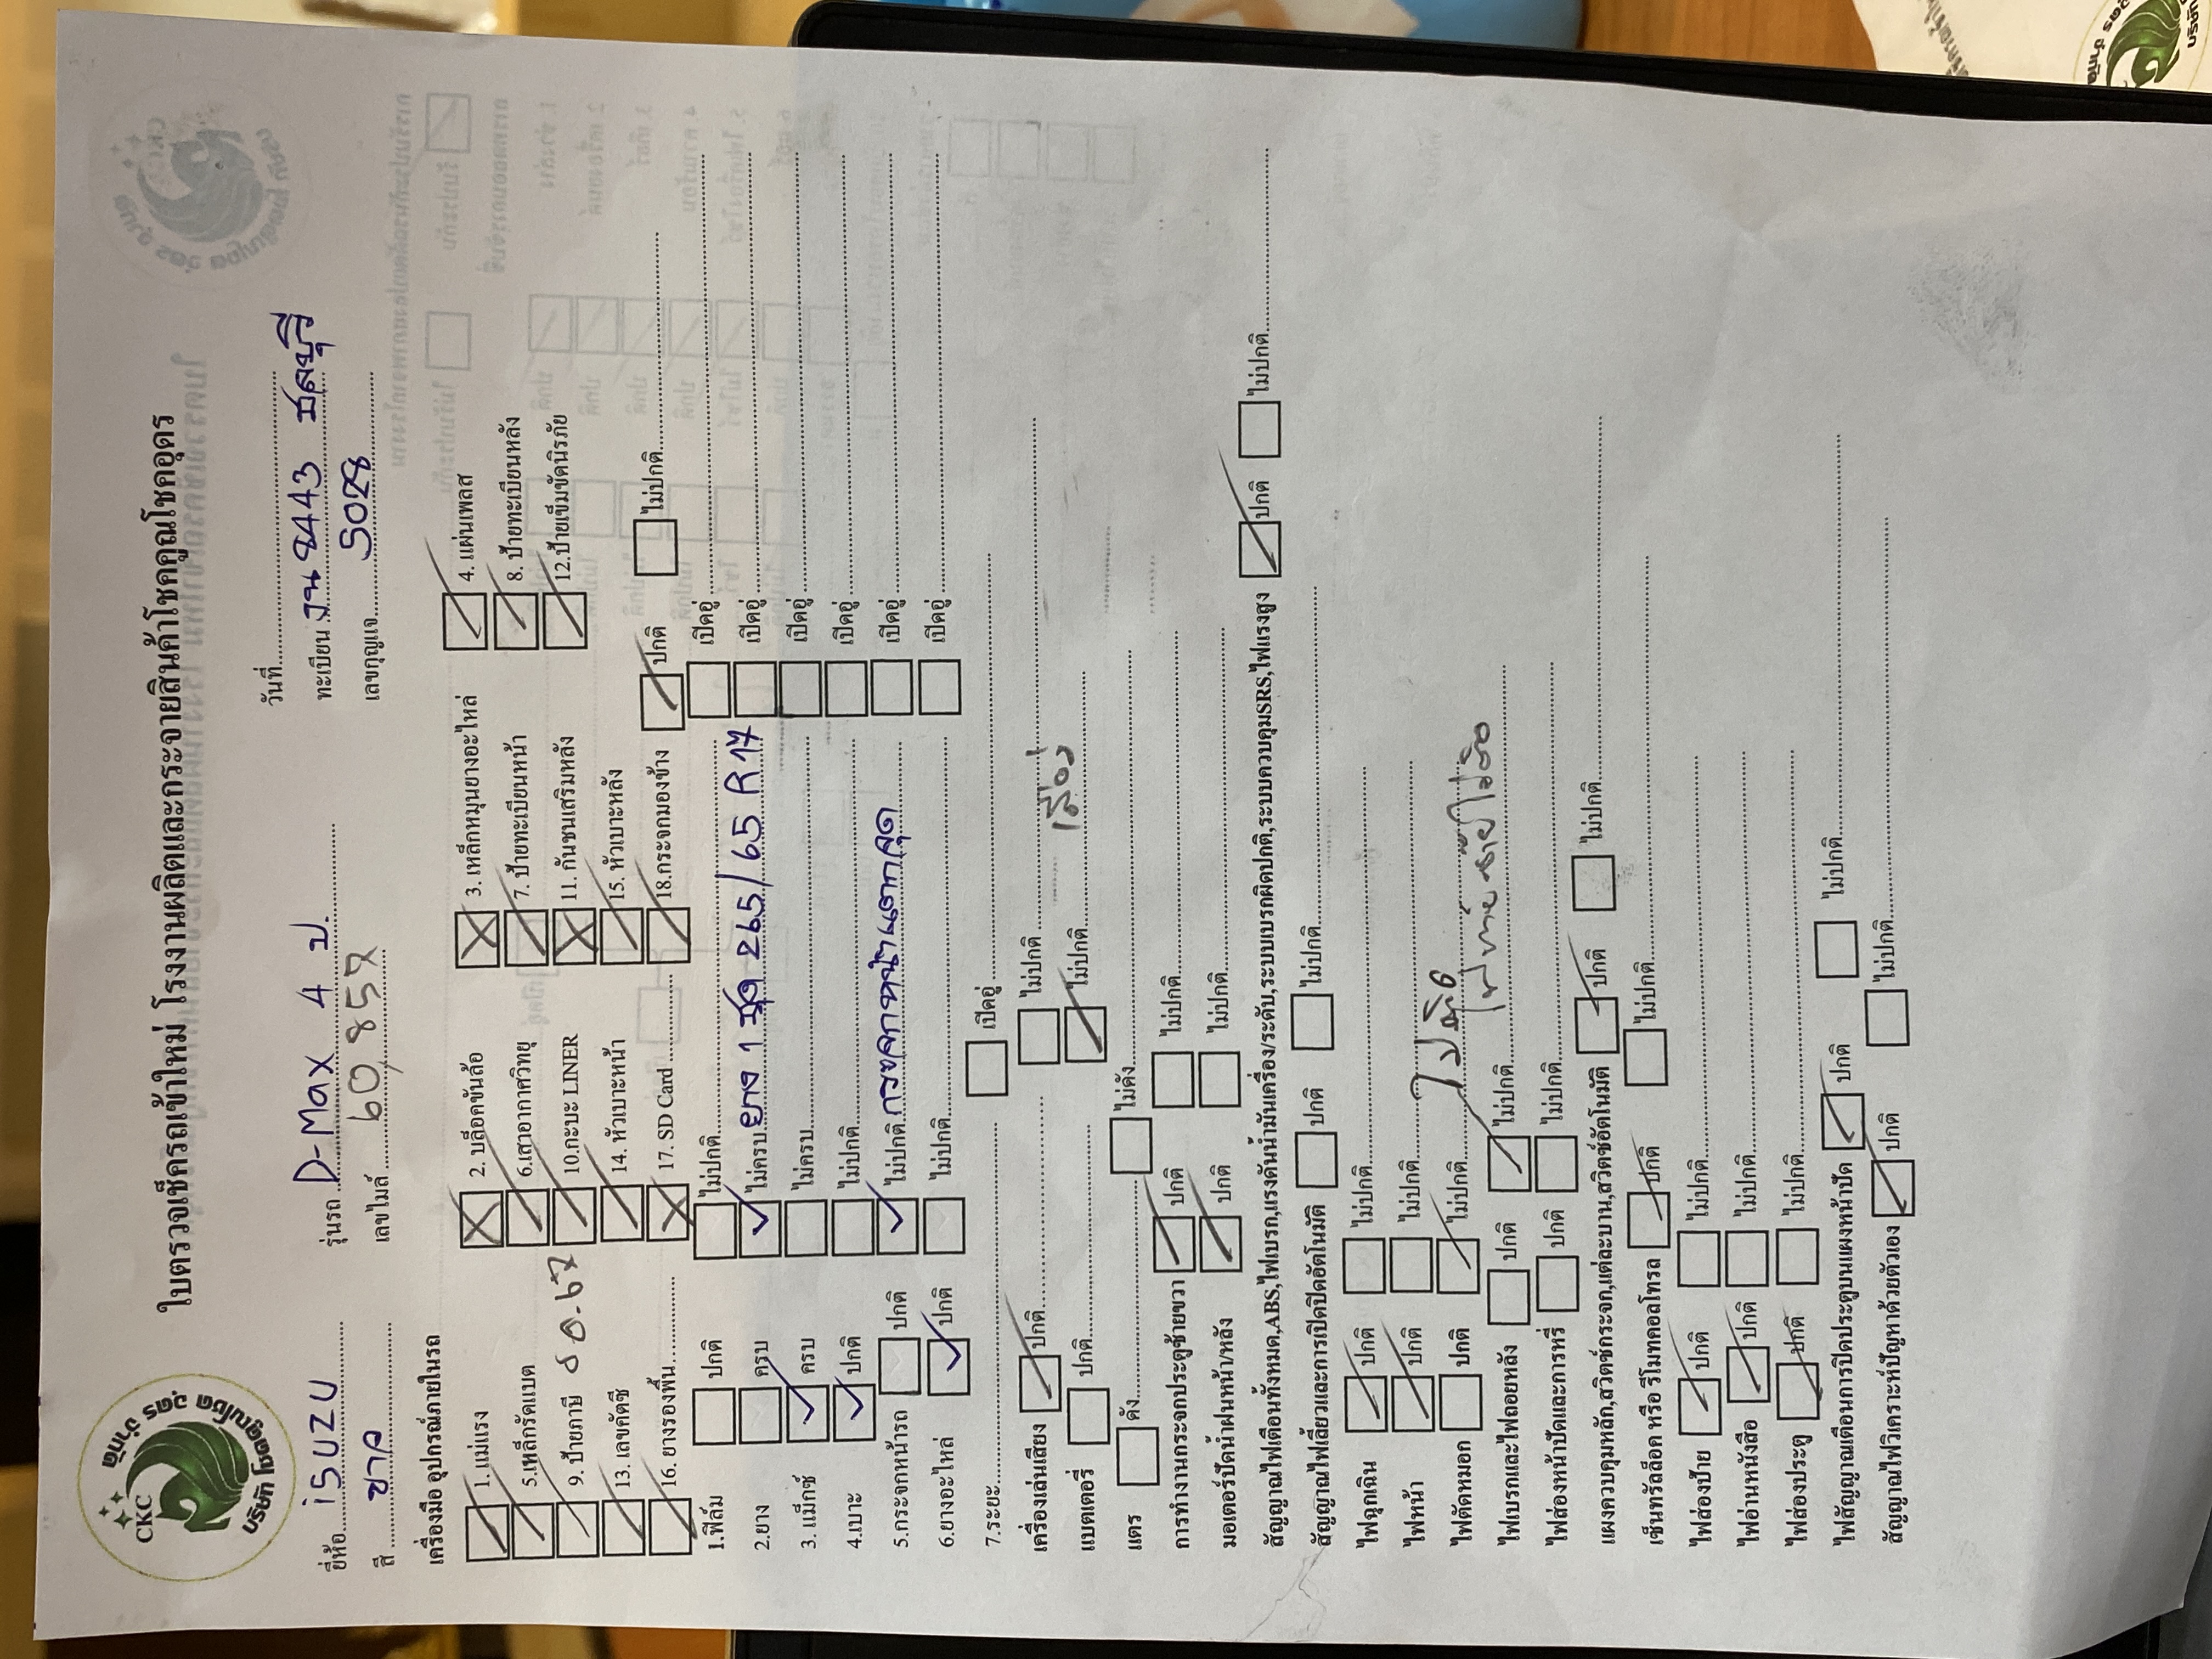 CKC
บริษัท โชคคูณโชค อุดร จำกัด
ใบตรวจเช็ครถเข้าใหม่ โรงงานผลิตและกระจายสินค้าโชคคูณโชคอุดร
วันที่
ยี่ห้อ iSUZU รุ่นรถ D-Max 4 ป. ทะเบียน 8443 ชลบุรี
สี ขาว เลขไมล์ 60,857 เลขกุญแจ S028
เครื่องมือ อุปกรณ์ภายในรถ
1. แม่แรง 2. บล็อคขันล้อ 3. เหล็กหมุนยางอะไหล่ 4. แผ่นเพลส
5.เหล็กรัดแบต 6.เสาอากาศวิทยุ 7. ป้ายทะเบียนหน้า 8. ป้ายทะเบียนหลัง
9. ป้ายภาษี 10.กะบะ LINER 11. กันชนเสริมหลัง 12.ป้ายเข็มขัดนิรภัย
13. เลขคัตซี 14. หัวเบาะหน้า 15. หัวเบาะหลัง
16. ยางรองพื้น 17. SD Card 18.กระจกมองข้าง ปกติ ไม่ปกติ
1.ฟิล์ม ปกติ ไม่ปกติ เปิดอู่
2.ยาง ครบ ไม่ครบ ยาง 1 ชุด 265/65 R 17 เปิดอู่
3. แม็กซ์ ครบ ไม่ครบ เปิดอู่
4.เบาะ ปกติ ไม่ปกติ เปิดอู่
5.กระจกหน้ารถ ปกติ ไม่ปกติ กระจกหน้าแตกสุด เปิดอู่
6.ยางอะไหล่ ปกติ ไม่ปกติ เปิดอู่
7.ระยะ เปิดอู่
เครื่องเล่นเสียง ปกติ ไม่ปกติ
แบตเตอรี่ ปกติ ไม่ปกติ เสื่อม
แตร ดัง ไม่ดัง
การทำงานกระจกประตูซ้ายขวา ปกติ ไม่ปกติ
มอเตอร์ปัดน้ำฝนหน้า/หลัง ปกติ ไม่ปกติ
สัญญาณไฟเตือนทั้งหมด,ABS,ไฟเบรก,แรงดันน้ำมันเครื่อง/ระดับ,ระบบเบรกผิดปกติ,ระบบควบคุมSRS,ไฟแรงสูง ปกติ ไม่ปกติ
สัญญาณไฟเลี้ยวและการเปิดปิดอัตโนมัติ ปกติ ไม่ปกติ
ไฟฉุกเฉิน ปกติ ไม่ปกติ
ไฟหน้า ปกติ ไม่ปกติ
ไฟตัดหมอก ปกติ ไม่ปกติ ไม่ติด
ไฟเบรกและไฟถอยหลัง ปกติ ไม่ปกติ ไฟท้ายซ้ายไม่ติด
ไฟส่องหน้าปัดและการหรี่ ปกติ ไม่ปกติ
แผงควบคุมหลัก,สวิตช์กระจก,แต่ละบาน,สวิตช์อัตโนมัติ ปกติ ไม่ปกติ
เซ็นทรัลล็อค หรือ รีโมทคอลโทรล ปกติ ไม่ปกติ
ไฟส่องป้าย ปกติ ไม่ปกติ
ไฟอ่านหนังสือ ปกติ ไม่ปกติ
ไฟส่องประตู ปกติ ไม่ปกติ
ไฟสัญญาณเตือนการปิดประตูบนแผงหน้าปัด ปกติ ไม่ปกติ
สัญญาณไฟวิเคราะห์ปัญหาด้วยตัวเอง ปกติ ไม่ปกติ